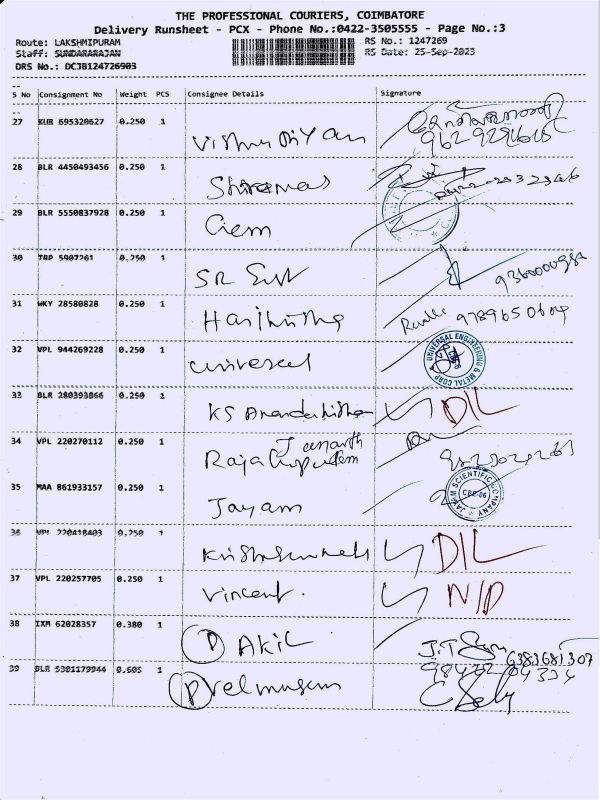 THE PROFESSIONAL COURIERS, COIMBATORE
Delivery Runsheet - PCX - Phone No.:0422-3505555 - Page No.:3
Route: LAKSHMIPURAM RS No.: 1247269
Staff: SUNDARARAJAN RS Date: 25-Sep-2023
DRS No.: DCJB124726903
S No Consignment No Weight PCS Consignee Details Signature
27 KUB 695320627 0.250 1
28 BLR 4450493456 0.250 1
29 BLR 5550837928 0.250 1 Ciem
30 TRP 5907261 0.250 1 SR
9360000982
31 WKY 28580828 0.250 1 Harikrithe 9789650604
32 VPL 944269228 0.250 1 universal UNIVERSAL ENGINEERING & METAL CORP
33 BLR 280393866 0.250 1 KS D/L
34 VPL 220270112 0.250 1 Raja
35 MAA 861933157 0.250 1 Jayam JAYAM SCIENTIFIC COMPANY CBE-06
36 VPL 220418403 0.250 1 D/L
37 VPL 220257705 0.250 1 Vincent. N/D
38 IXM 62028357 0.380 1 D Akil J.T 6383681307
39 BLR 5301179944 0.605 1 D velmurugan